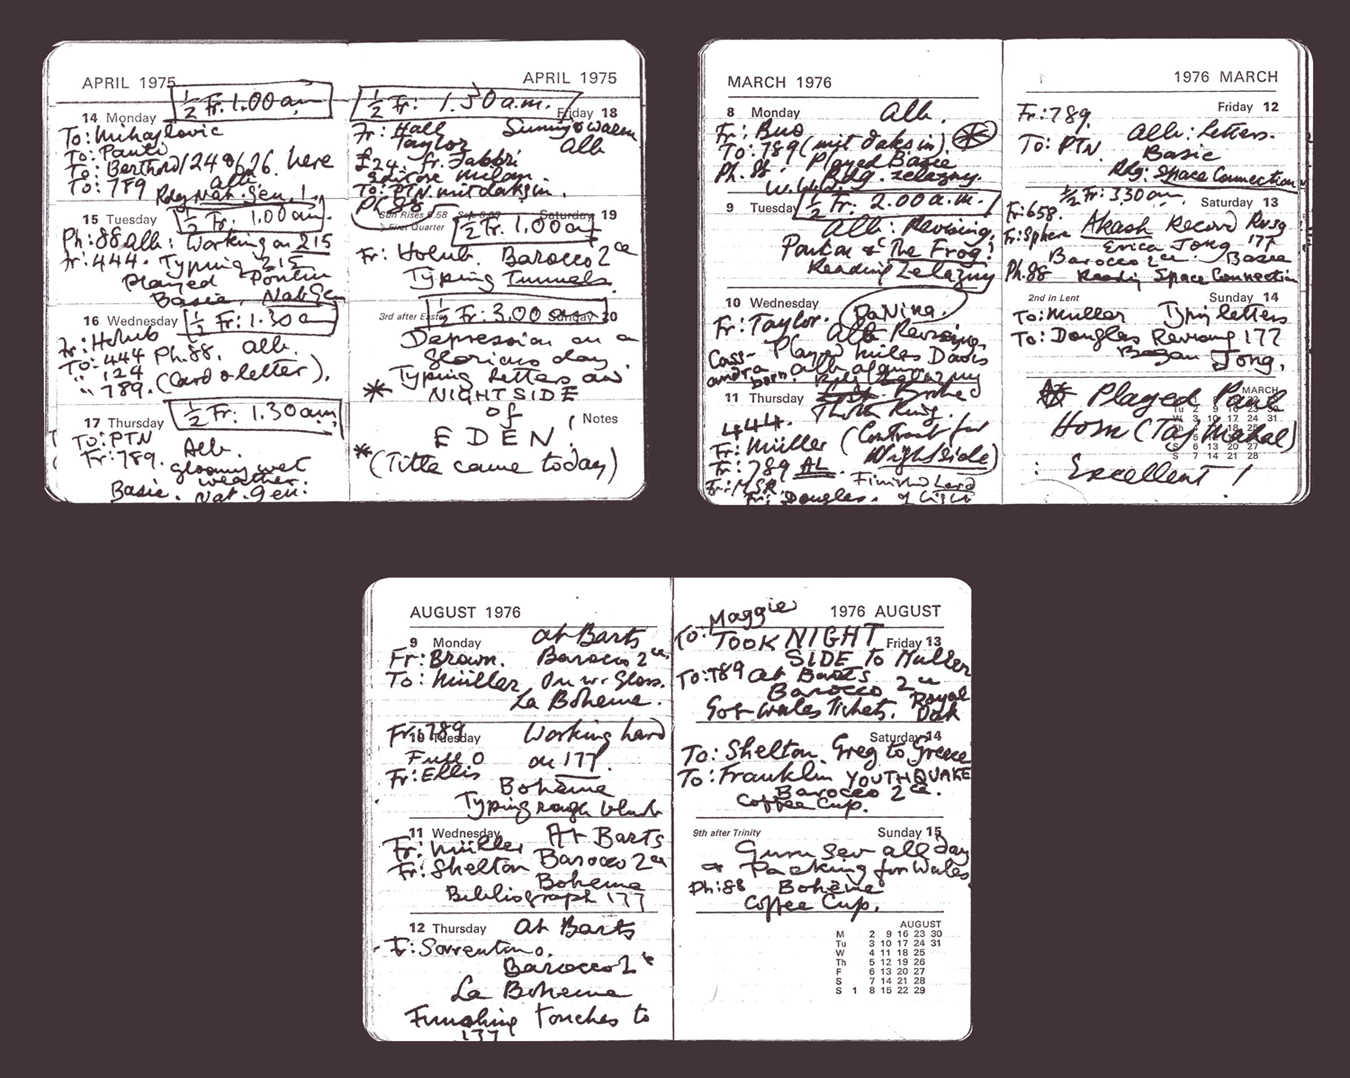 APRIL 1975
½ Fr: 1.00 am
14 Monday
To: Mihajlovic
To: Pauli
To: Berthold / 24 & 626. here
To: 789 Alb.
Rdg Nat. Gen.!
15 Tuesday
½ Fr: 1.00 am.
Ph: 88 Alb: Working on 215
Fr: 444. Typing 215
Played
Basie. Nat Gen
16 Wednesday
½ Fr: 1.30 a
Fr: Holub
To: 444 Ph. 88. Alb.
" 124
" 789. (Card & letter).
17 Thursday
½ Fr: 1.30 am
To: PTN
Fr: 789. Alb.
gloomy wet
weather.
Basie. Nat. Gen:
APRIL 1975
½ Fr: 1.30 a.m.
Friday 18
Fr: Hall Sunny & Warm
Taylor Alb
£24. Fr. Fabbri
Editore Milan.
To: PTN. mit daksin.
Ph 88
Sun Rises 5.58
First Quarter
Saturday 19
½ Fr: 1.00 am
Fr: Holub. Barocco 2ce
Typing Tunnels.
3rd after Easter
½ Fr: 3.00 am
Sunday 20
Depression on a
glorious day
Typing letters and
* NIGHTSIDE
of
EDEN!
Notes
* (Title came today)
MARCH 1976
8 Monday Alb.
Fr: Buo
To: 789 (mit daksin).
Ph. 88. Played Basie
Rdg. Zelazny.
9 Tuesday
½ Fr: 2.00 a.m.
Alb: Revising.
& The Frog!
Reading Zelazny
10 Wednesday
Fr: Taylor. Alb Revising
Cass- Played Miles Davis
andra
born.
11 Thursday
444.
Fr: Müller (Contract for
Fr: 789 AL. Nightside)
Fr: MSR. Finished Lord
Fr: Douglas. of Light
1976 MARCH
Friday 12
Fr: 789.
Alb: Letters.
To: PTN. Basic
Rdg: Space Connection
½ Fr: 3.30 am.
Saturday 13
Fr: 658. Akash Record Rvsg
Fr: Sphere Erica Jong 177
Barocco 2ce. Basie
Ph. 88 Reading Space Connection
2nd in Lent
Sunday 14
To: Müller Typing letters
To: Douglas Revising 177
Began Jong.
MARCH
* Played Paul
Horn (Taj Mahal)
Excellent!
Tu 2 9 16 23
W 3 10 17 24 31
S 6 13 20 27
S 7 14 21 28
AUGUST 1976
9 Monday at Barts
Fr: Brown. Barocco 2ce.
To: Müller On w. Gloss.
La Boheme.
Fr: 789
10 Tuesday
Working hard
Full O on 177.
Fr: Ellis
Boheme
Typing rough blurb
11 Wednesday At Barts
Fr: Müller
Fr: Shelton Barocco 2ce
Boheme
Bibliograph 177
12 Thursday at Barts
Fr: Sorrentino.
Barocco 2ce
La Boheme
Finishing touches to
177
1976 AUGUST
Maggie
To: TOOK NIGHT
Friday 13
SIDE To Müller
To: 789 at Barts
Barocco 2ce Royal
Got Wales Tickets. Oak
Saturday 14
To: Shelton. Greg to Greece
To: Franklin YOUTHQUAKE
Barocco 2ce.
Coffee Cup.
9th after Trinity
Sunday 15
all day
& Packing for Wales
Ph: 88 Boheme
Coffee Cup.
AUGUST
M 2 9 16 23 30
Tu 3 10 17 24 31
W 4 11 18 25
Th 5 12 19 26
F 6 13 20 27
S 7 14 21 28
S 1 8 15 22 29